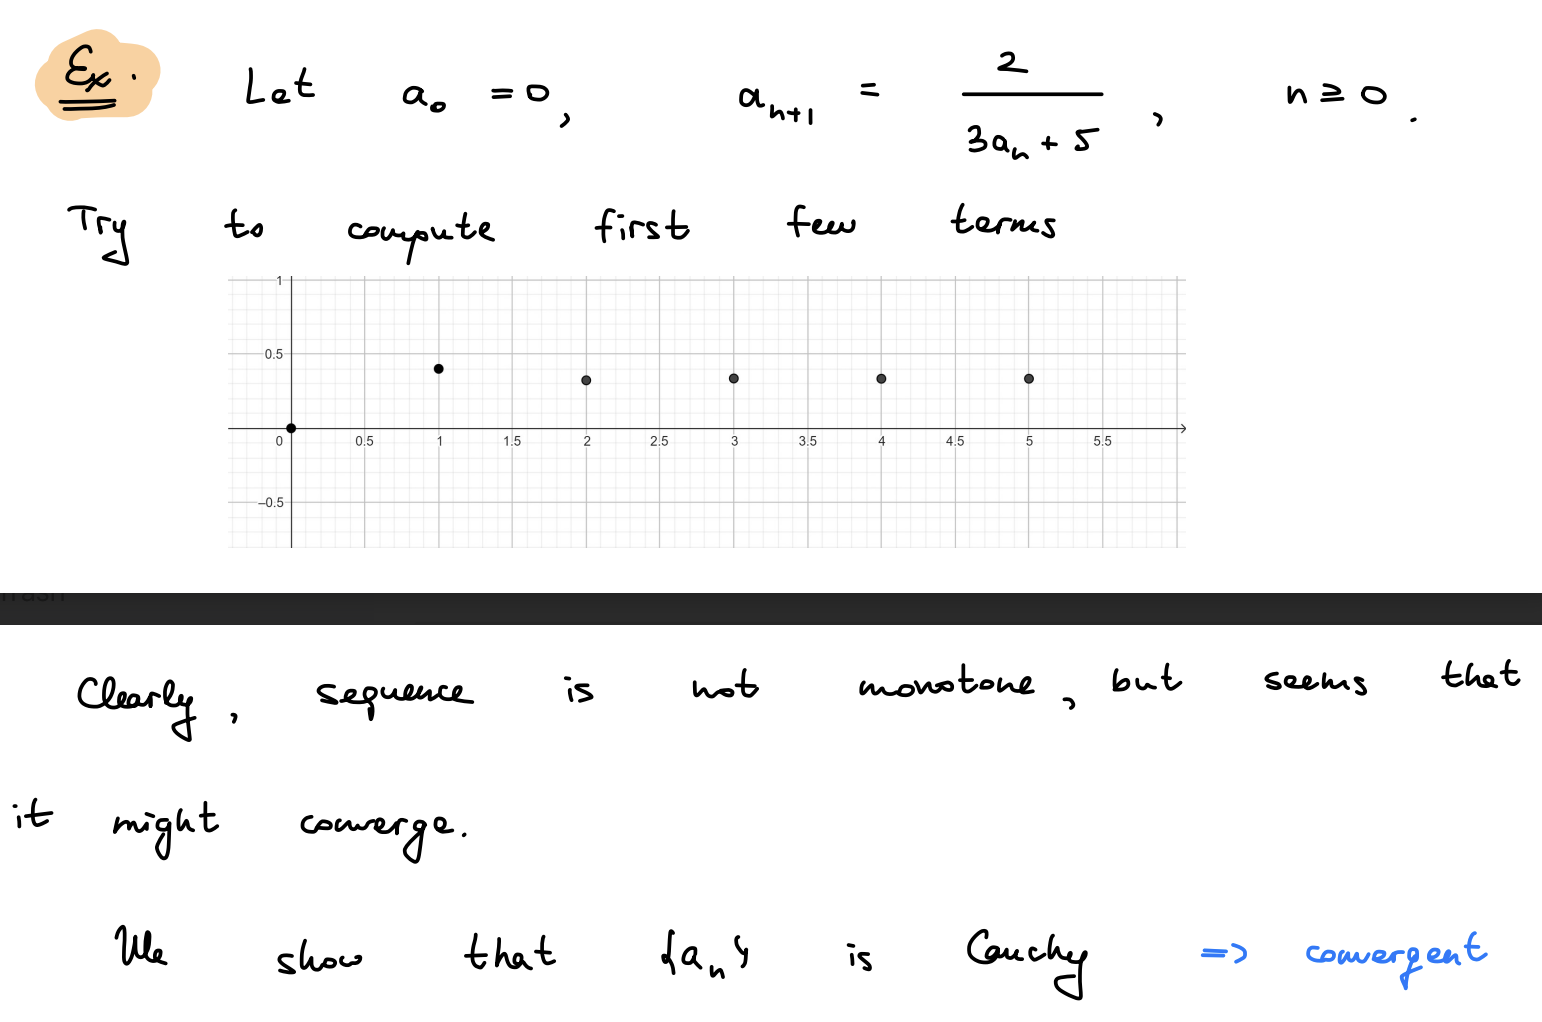 Ex. Let a₀ = 0, aₙ₊₁ = 2/(3aₙ + 5), n ≥ 0.
Try to compute first few terms
1
0.5
0 0.5 1 1.5 2 2.5 3 3.5 4 4.5 5 5.5
–0.5
Clearly, sequence is not monotone, but seems that
it might converge.
We show that {aₙ} is Cauchy => convergent